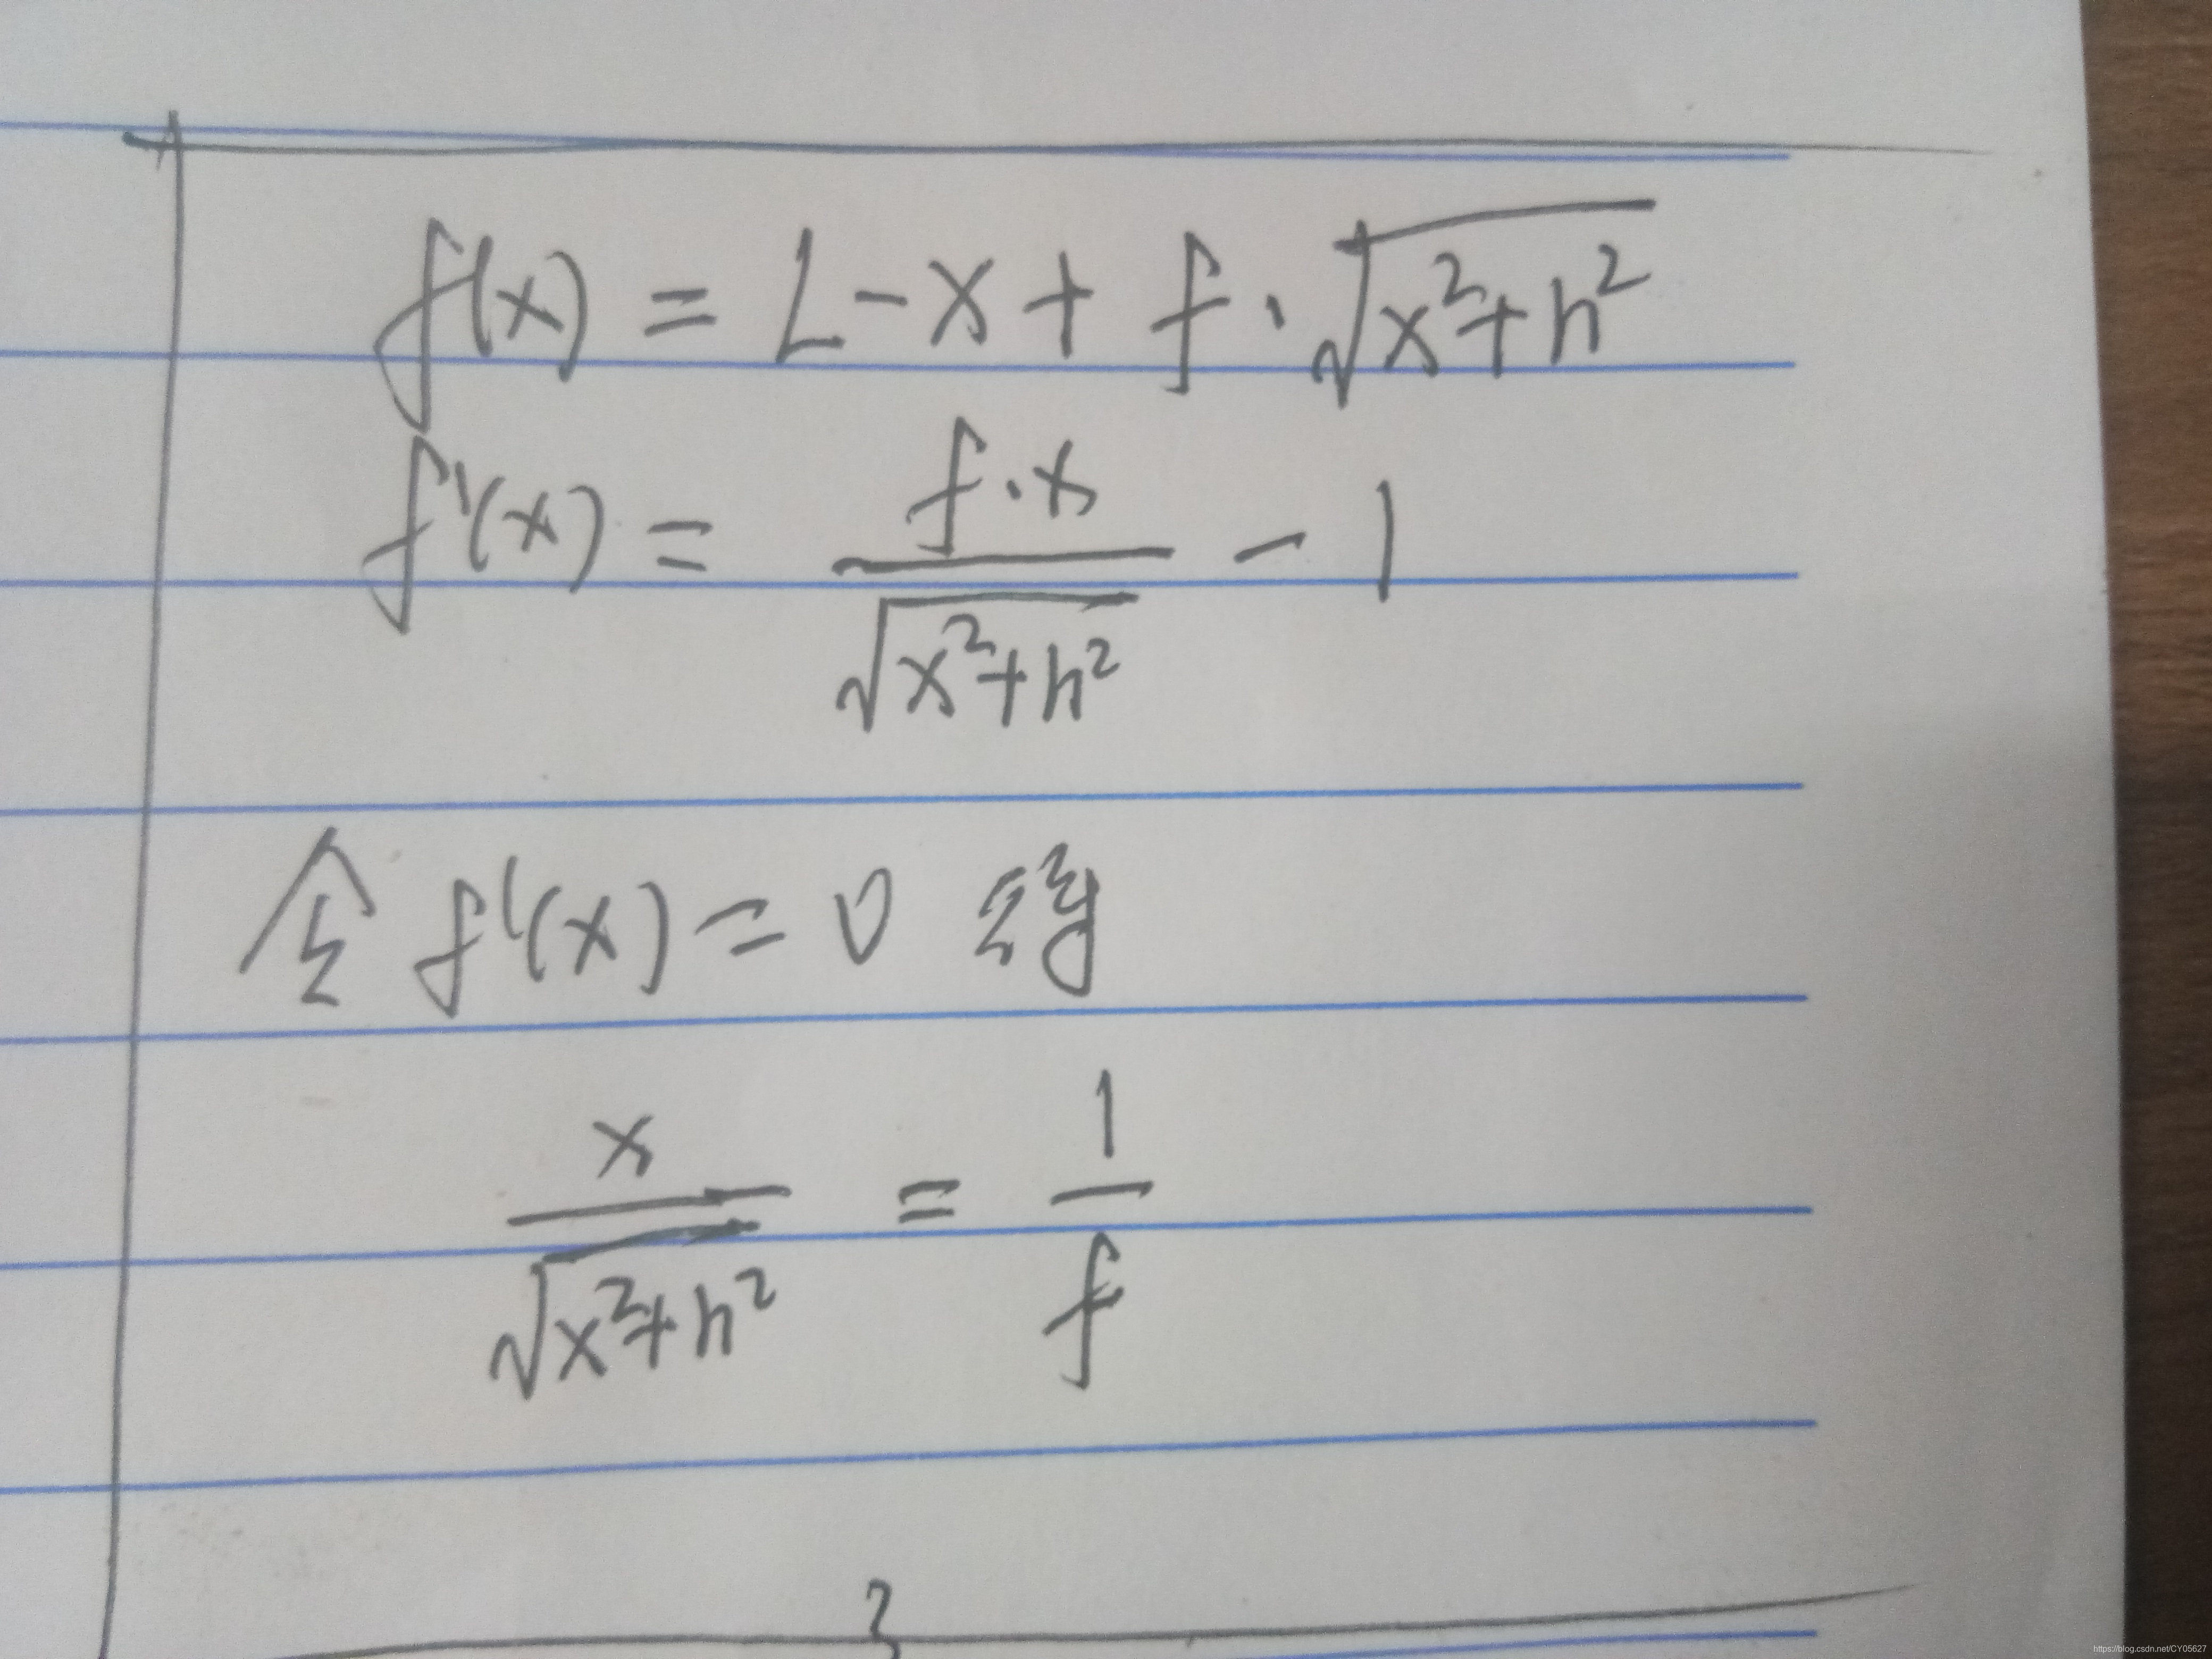 f(x) = L - x + f · √(x²+h²)
f'(x) = (f·x)/√(x²+h²) - 1
令 f'(x) = 0 得
x/√(x²+h²) = 1/f
https://blog.csdn.net/CY05627